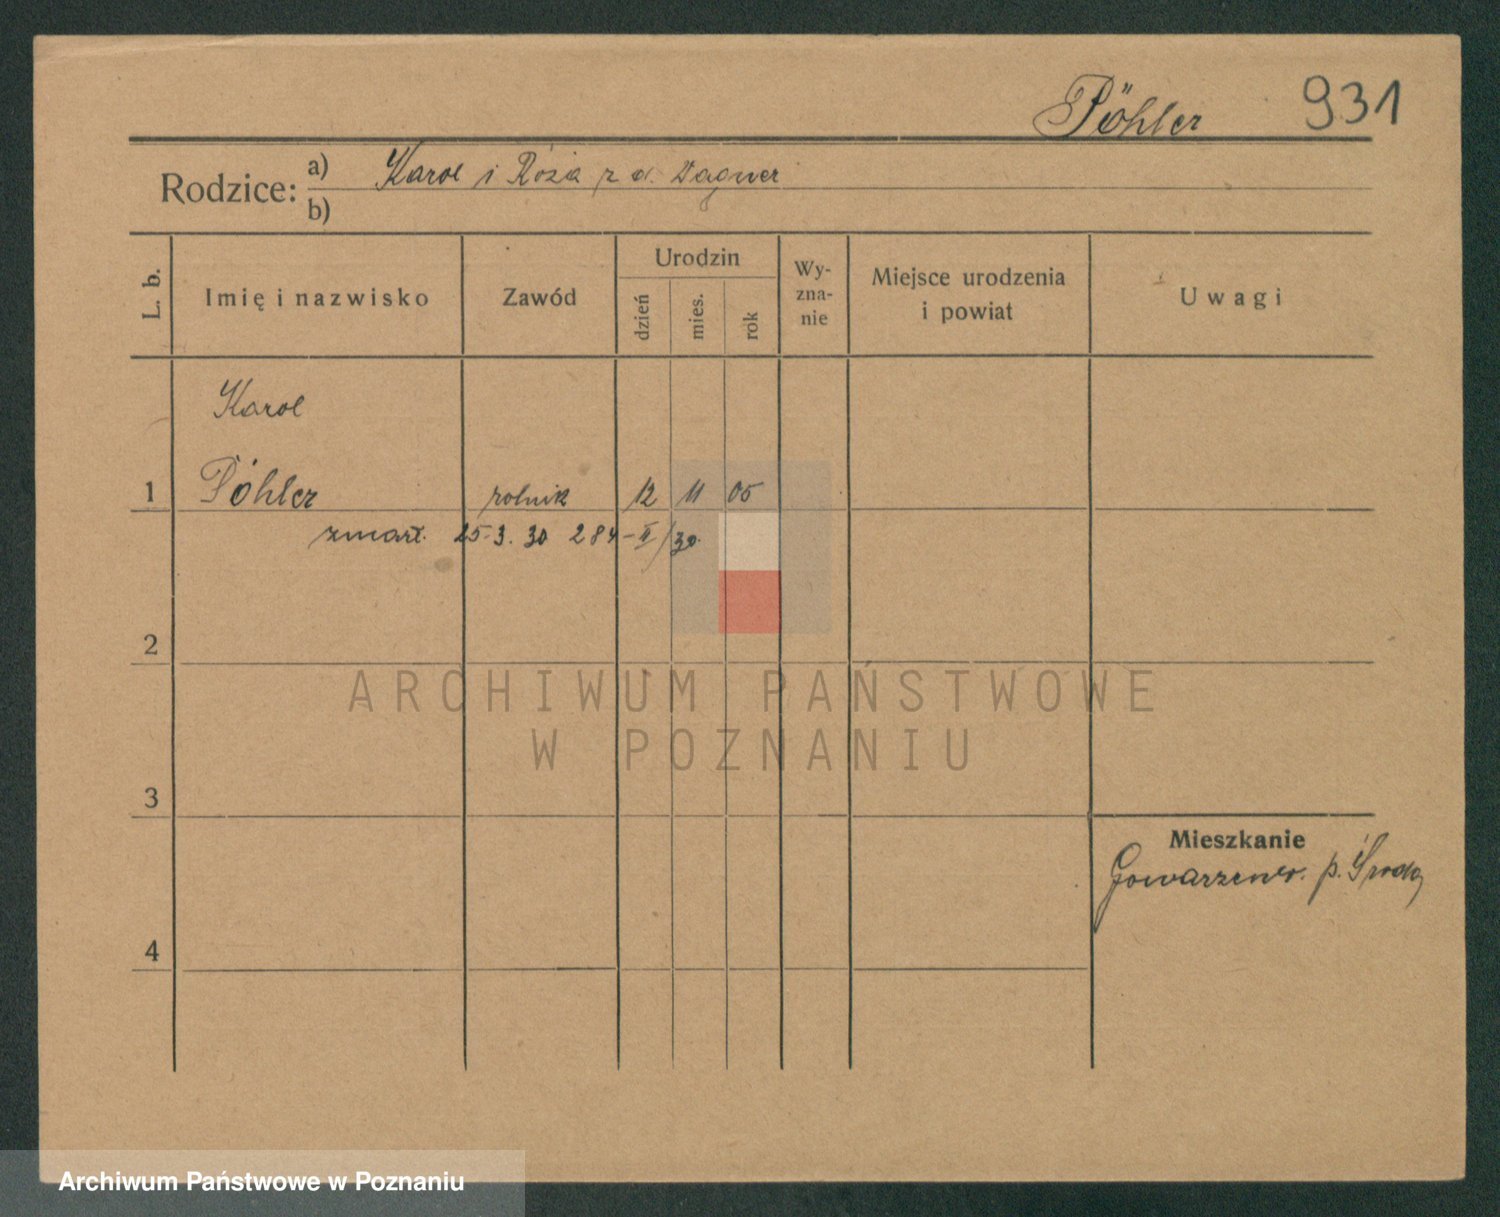 Pöhler 931
Rodzice: a) Karol i Róża z d. Wagner
b)
L. b. Imię i nazwisko Zawód Urodzin dzień mies. rok Wy-zna-nie Miejsce urodzenia i powiat Uwagi
Karol
1 Pöhler rolnik 12 11 05
zmarł. 25-3. 30 284-II/30.
2
ARCHIWUM PAŃSTWOWE
W POZNANIU
3
Mieszkanie
Gowarzewo. p. Środa
4
Archiwum Państwowe w Poznaniu